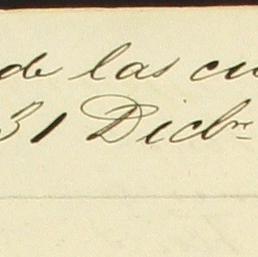 de las cu
31 Dicbre